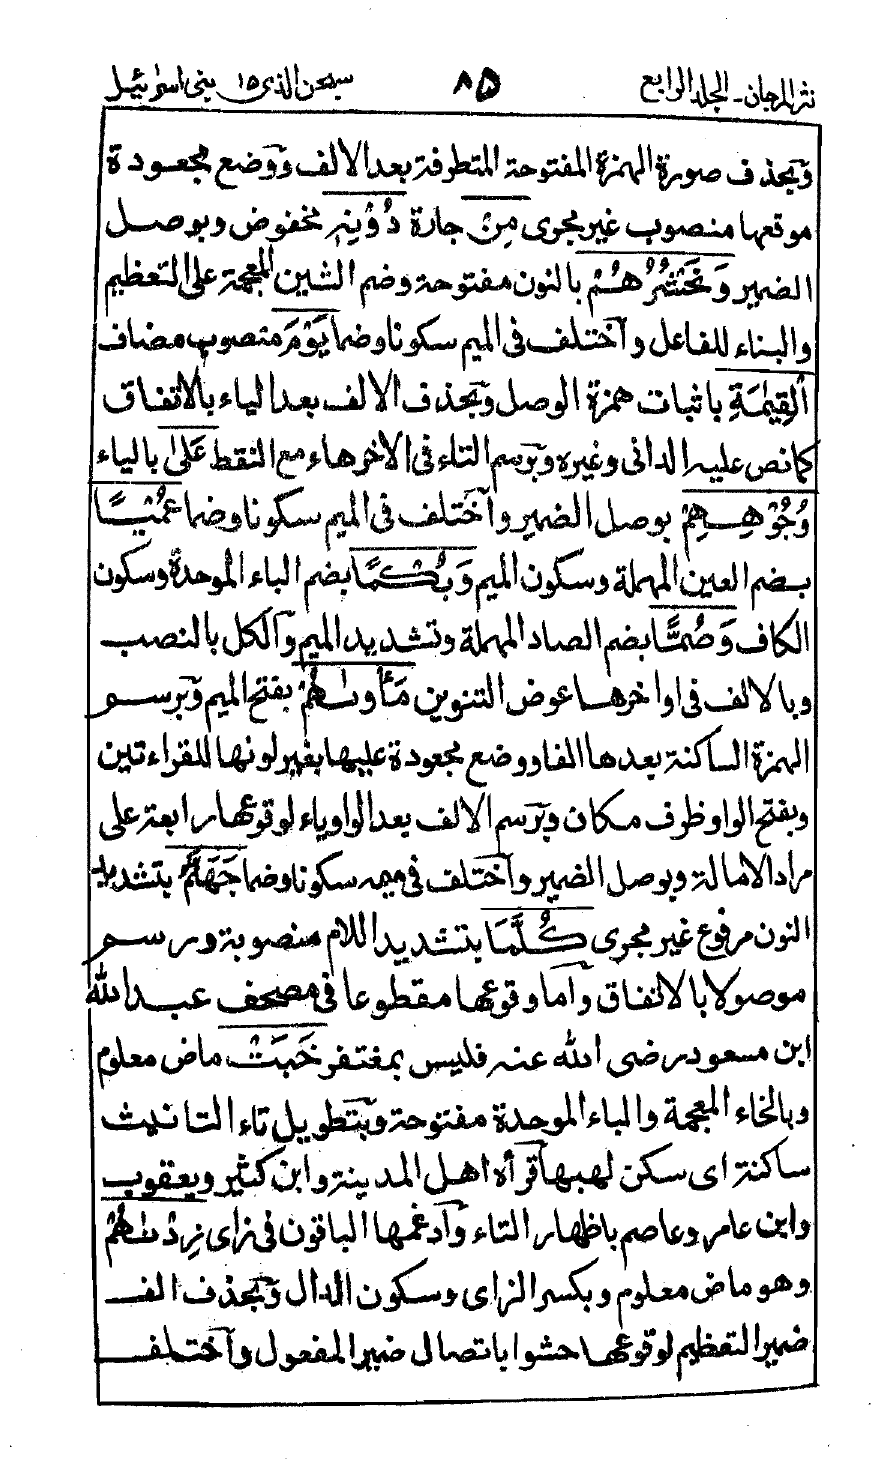 نثر المرجان ـ الجلد الرابع ٨٥ سبحن الذى ١٥ بنى اسرائيل
وَبحذف صورة الهمزة المفتوحة المتطوفة بعد الالف وَوضع مجعودة
موقعها منصوب غير مجرى مِنْ جارة دُوْنِهٖ مخفوض وبوصل
الضمير وَنَحْشُرُهُمْ بالنون مفتوحة وضم الشين المعجمة على التعظيم
والبناء للفاعل وآختلف فى الميم سكونا وضما يَوْمَ منصوب مضاف
الْقِيٰمَةِ باثبات همزة الوصل وَبحذف الالف بعد الياء بالاتفاق
كما نص عليه الدانى وغيره وَبرسم التاء فى الاخر هاء مع النقط عَلٰى بالياء
وُجُوْهِهِمْ بوصل الضمير وآختلف فى الميم سكونا وضما عُمْيًا
بضم العين المهملة وسكون الميم وَبُكْمًا بضم الباء الموحدة وسكون
الكاف وَصُمًّا بضم الصاد المهملة وتشديد الميم وَالكل بالنصب
وبالالف فى اواخرها عوض التنوين مَأْوٰىهُمْ بفتح الميم وَبرسم
الهمزة الساكنة بعدها الفا ووضع مجعودة عليها بغير لونها للقراءتين
وبفتح الواو ظرف مكان وَبرسم الالف بعد الواو ياء لوقوعها رابعة على
مراد الامالة وبوصل الضمير وآختلف فى ميمه سكونا وضما جَهَنَّمُ بتشديد
النون مرفوع غير مجرى كُلَّمَا بتشديد اللام منصوبة ورسم
موصولا بالاتفاق وآما وقوعها مقطوعا فى مصحف عبد الله
ابن مسعود رضى الله عنه فليس بمغتفر خَبَتْ ماض معلوم
وبالخاء المعجمة والباء الموحدة مفتوحة وَبتطويل تاء التانيث
ساكنة اى سكن لهبها قرأه اهل المدينة وابن كثير ويعقوب
وابن عامر وعاصم باظهار التاء وآدغمها الباقون فى زاى زِدْنٰهُمْ
وهو ماض معلوم وبكسر الزاى وسكون الدال وَبحذف الف
ضمير التعظيم لوقوعها حشوا باتصال ضمير المفعول وآختلف